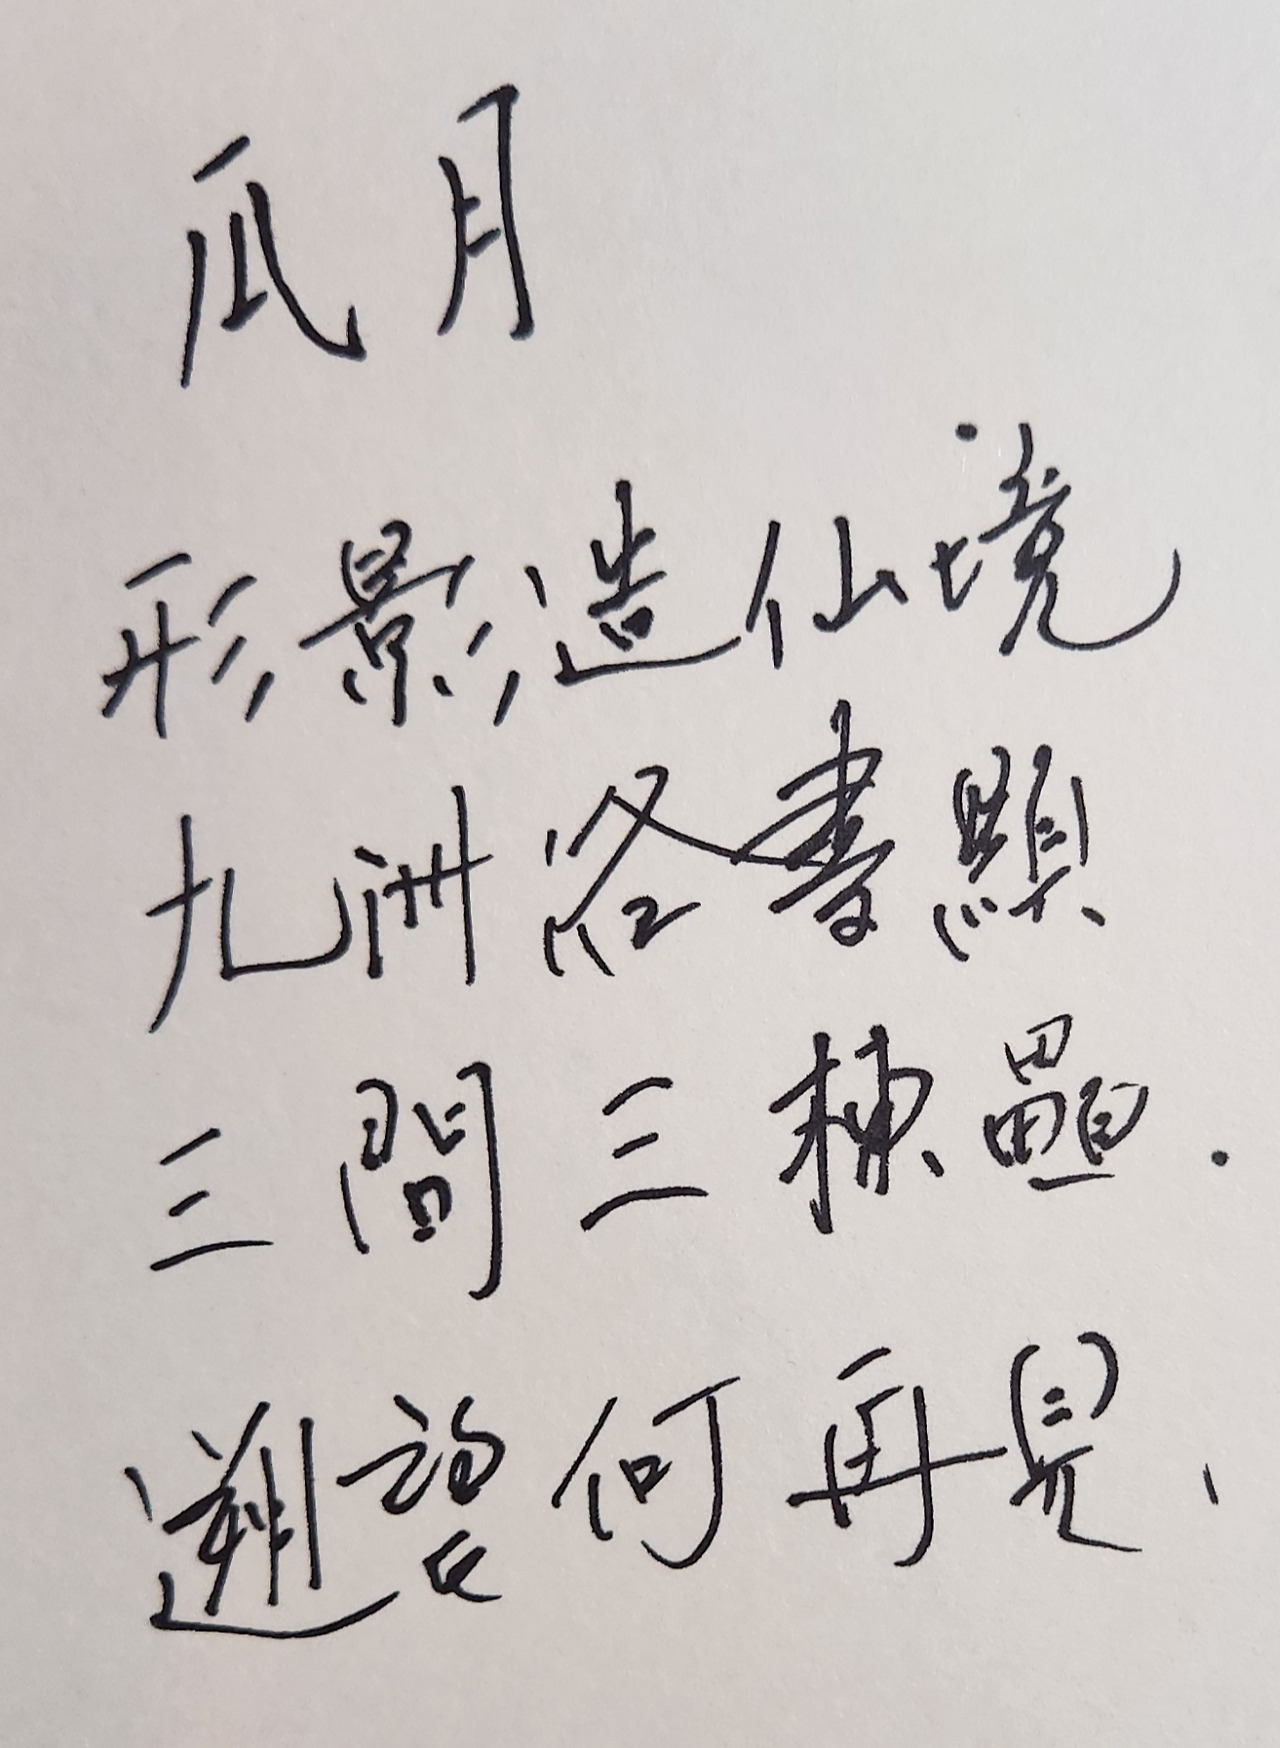 瓜月
形影造仙境
九洲洛書顯
三間三棟疊.
遡 何再見、